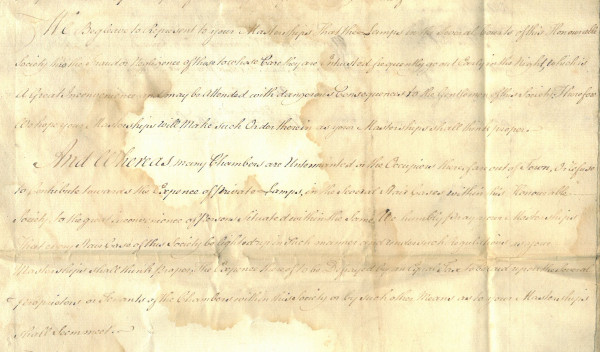 We Beg leave to Represent to your Masterships That the Lamps in the Several Courts of this Honourable
Society has the Fraud or Negligence of those to whose Care they are Intrusted frequently go out Early in the Night, which is
A Great Inconvenience and may be attended with dangerous Consequences to the Gentlemen of this Society Therefore
We hope your Masterships will Make such Order therein as your Masterships shall think proper.
And Whereas many Chambers are Untenanted or the Occupiers thereof are out of Town, or refuse
to Contribute towards the Expence of Private Lamps, in the Several Stair Cases within this Honourable
Society to the great Inconvenience of Persons Situated within the Same, We humbly pray your Masterships
That every Stair Case of this Society be lighted, in such manner and under such regulations as your
Masterships shall think Proper The Expence thereof to be Defrayed by an Equal Tax to be laid upon the Several
Proprietors or Tenants of the Chambers within this Society or by such other Means as to your Masterships
shall Seem meet.